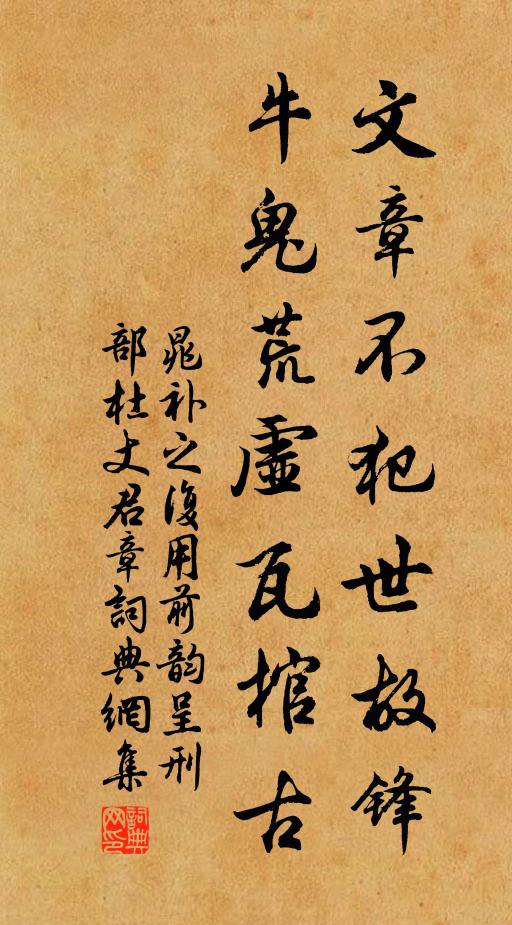 文章不犯世故锋
牛鬼荒虚瓦棺古
晁补之復用前韵呈刑
部杜丈君章詞典網集
詞典网印